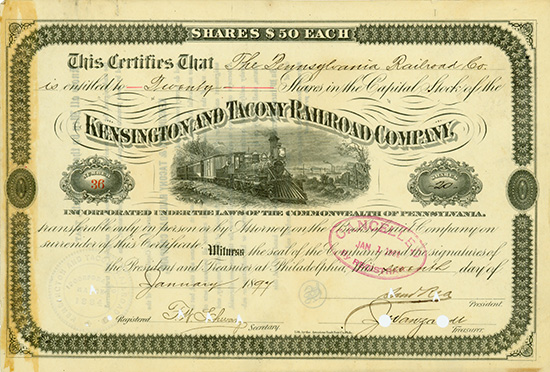 SHARES $50 EACH
This Certifies That The Pennsylvania Railroad Co.
is entitled to Twenty Shares in the Capital Stock of the
KENSINGTON AND TACONY RAILROAD COMPANY,
36
SHARES
20
INCORPORATED UNDER THE LAWS OF THE COMMONWEALTH OF PENNSYLVANIA.
transferable only in person or by Attorney on the Books of the Company on
surrender of this Certificate. Witness the seal of the Company and the signatures of
the President and Treasurer at Philadelphia, this seventh day of
January 1897
CANCELLED
JAN
President.
Registered
Secretary
Treasurer.